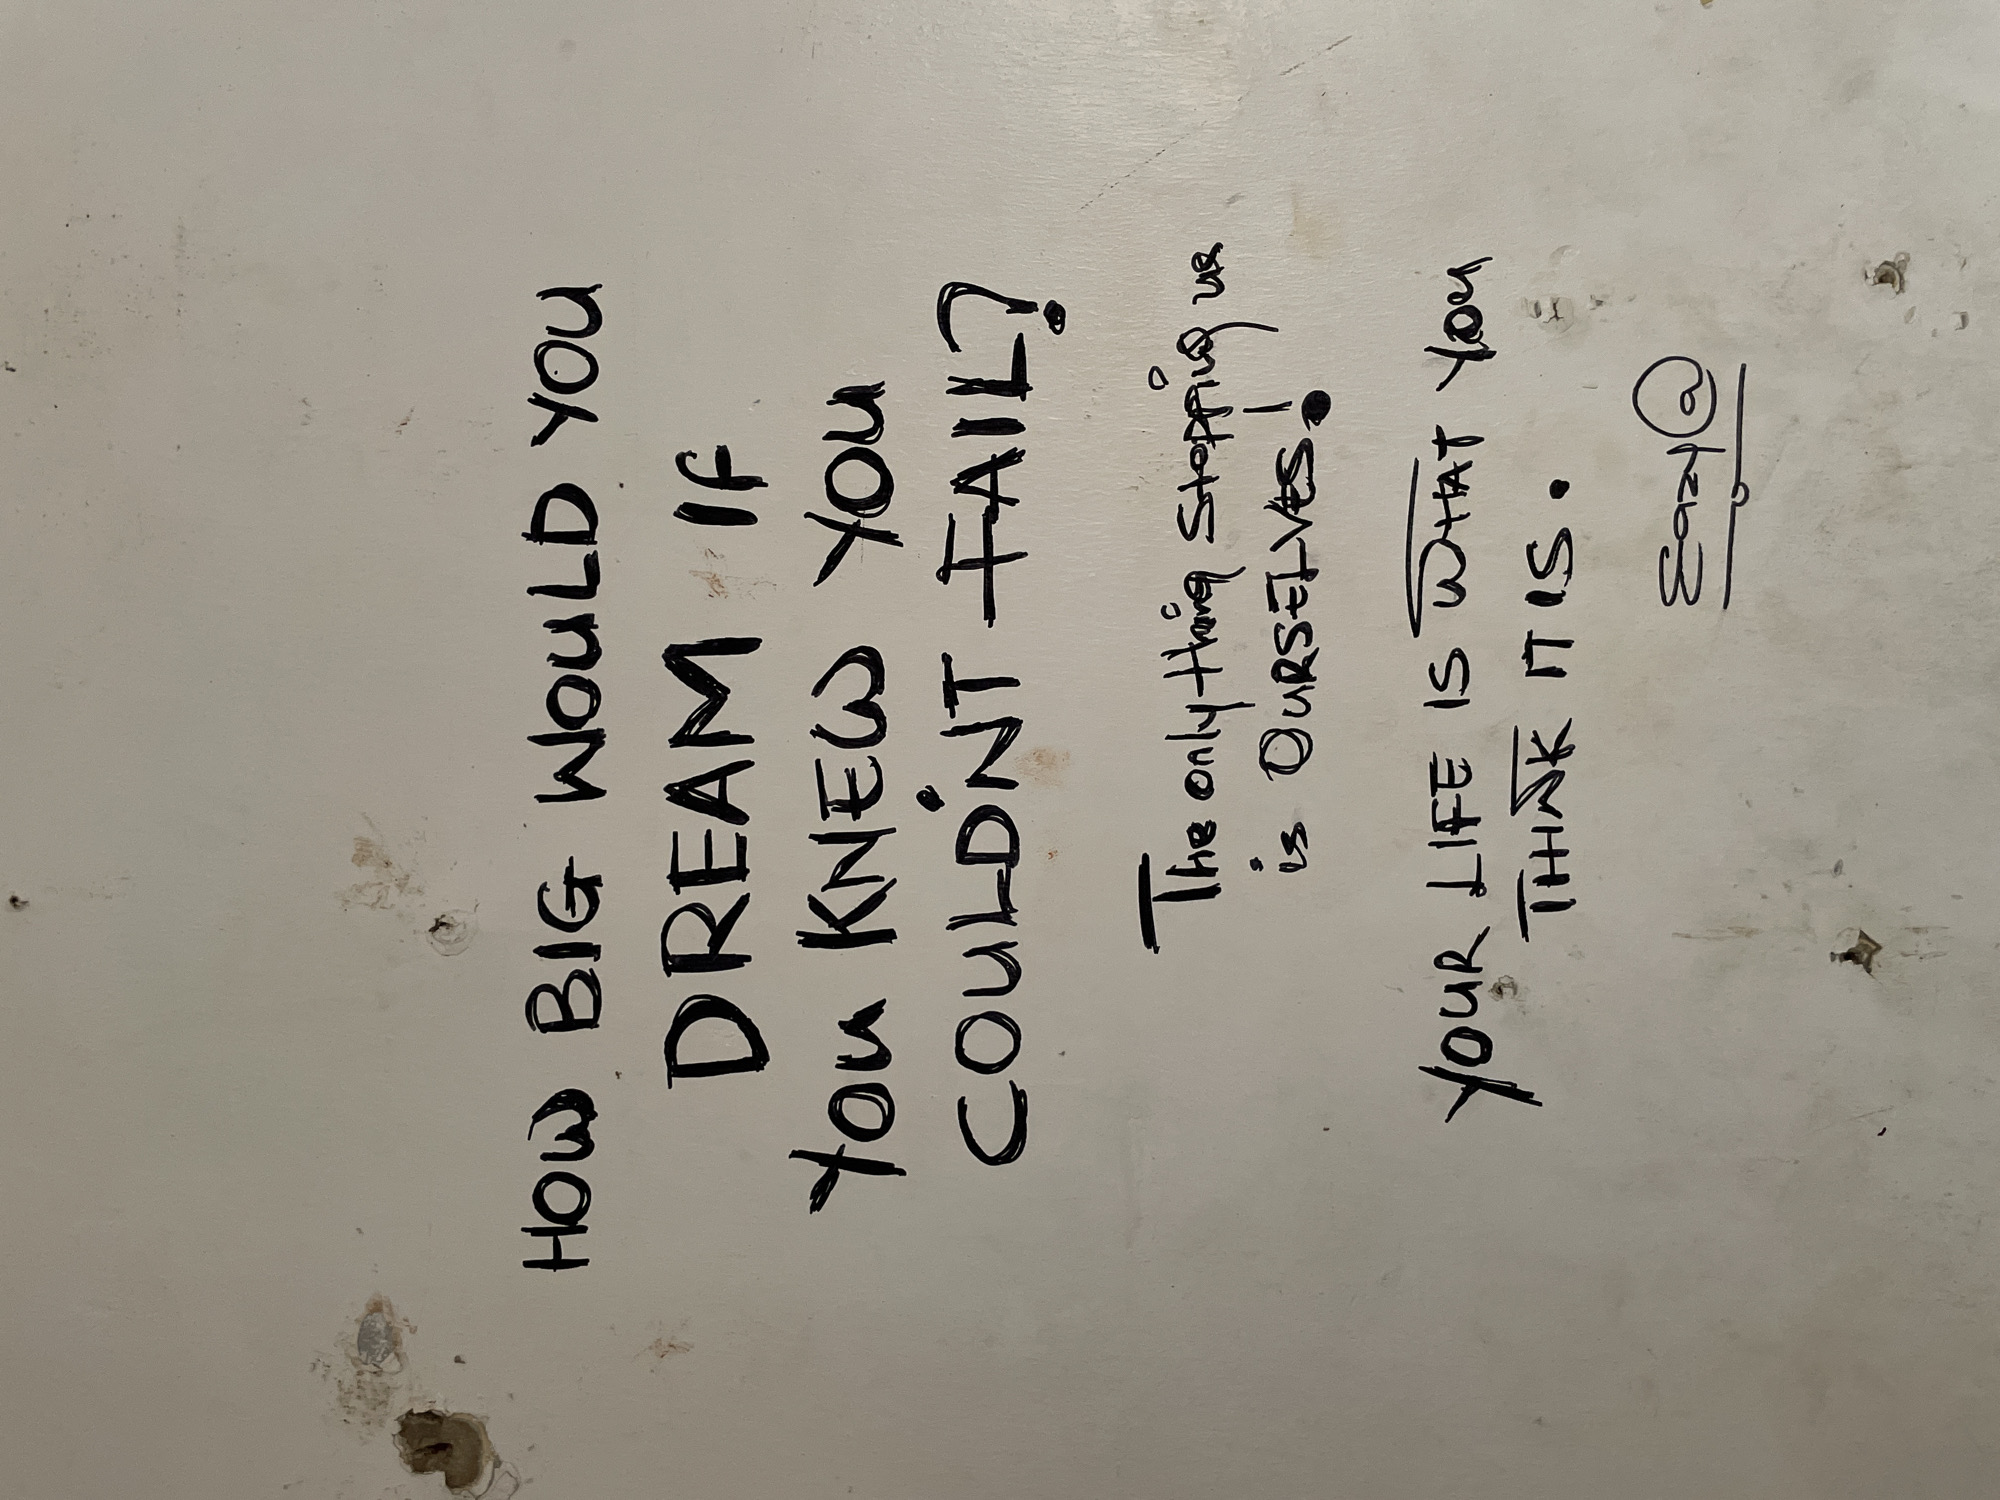 HOW BIG WOULD YOU
DREAM IF
YOU KNEW YOU
COULD'NT FAIL?
The only thing stopping us
is OURSELVES!
YOUR LIFE IS WHAT YOU
THINK IT IS.
Eazy